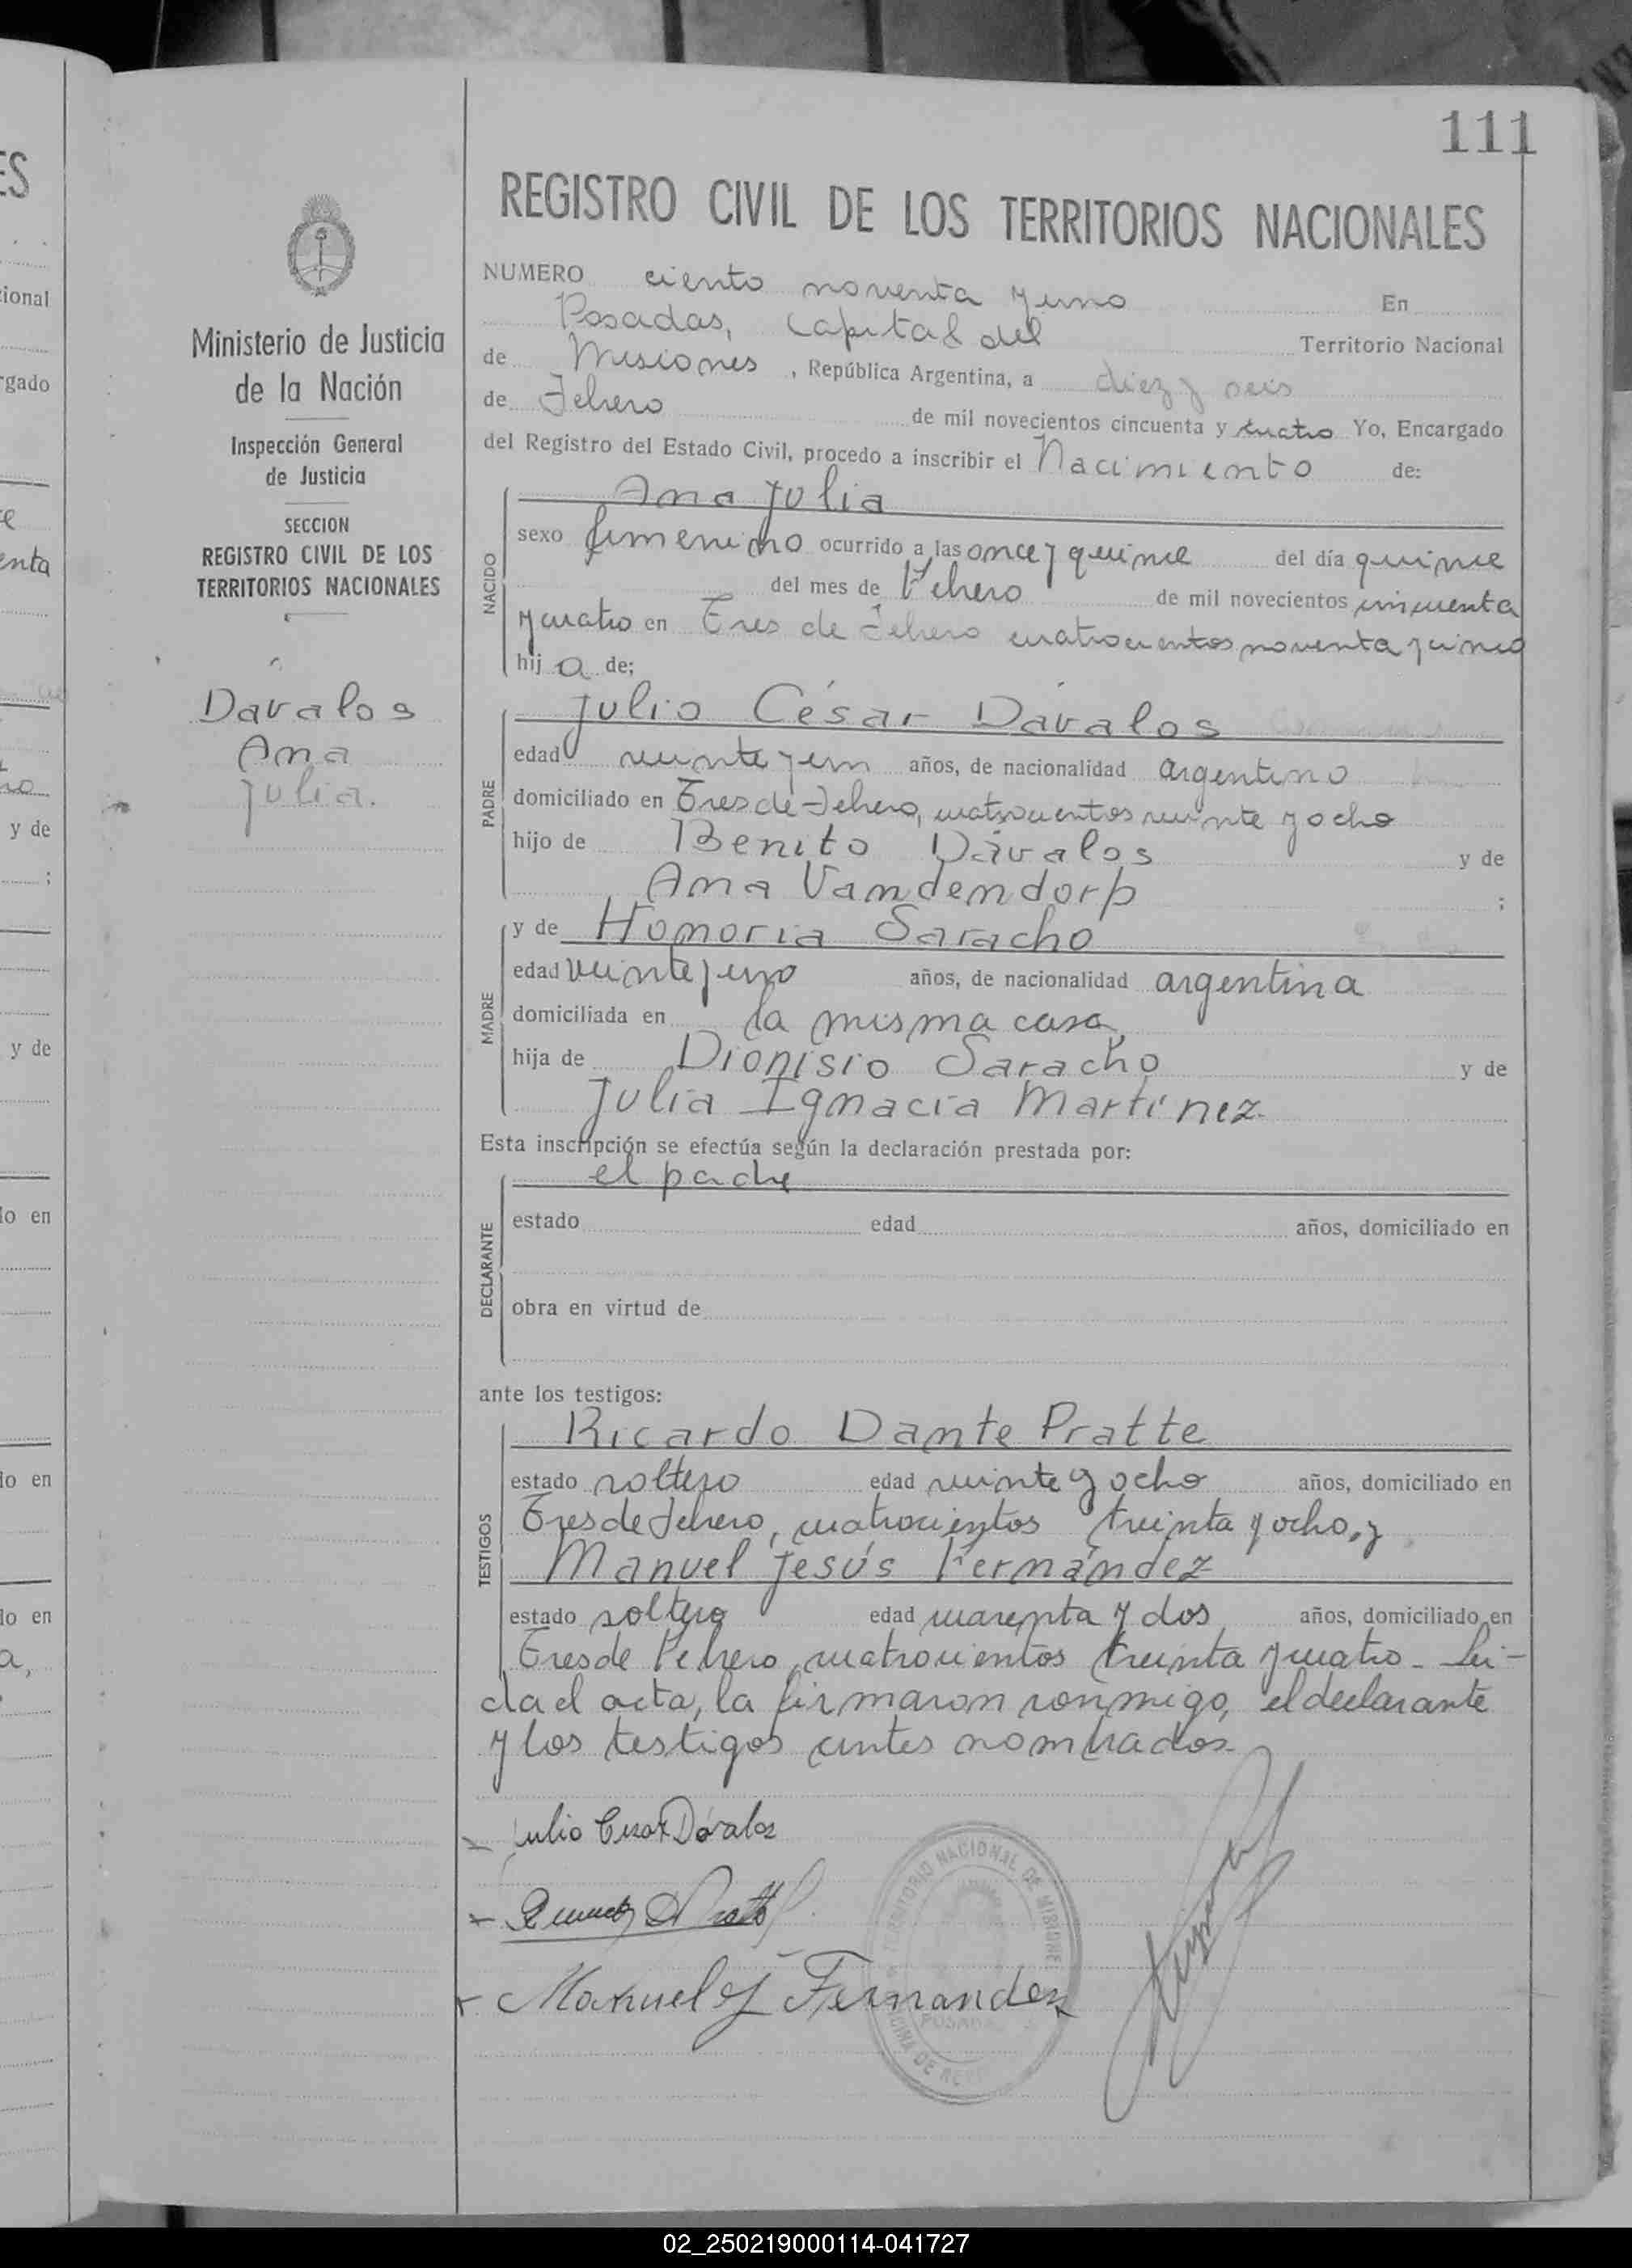 111
REGISTRO CIVIL DE LOS TERRITORIOS NACIONALES
Ministerio de Justicia
de la Nación
Inspección General
de Justicia
SECCION
REGISTRO CIVIL DE LOS
TERRITORIOS NACIONALES
Dávalos
Ana
Julia.
NUMERO ciento noventa y uno En
Posadas, Capital del Territorio Nacional
de Misiones, República Argentina, a diez y seis
de Febrero de mil novecientos cincuenta y cuatro Yo, Encargado
del Registro del Estado Civil, procedo a inscribir el Nacimiento de:
Ana Julia
NACIDO
sexo femenino ocurrido a las once y quince del día quince
del mes de Febrero de mil novecientos cincuenta
y cuatro en Tres de Febrero cuatrocientos noventa y cinco
hija de;
Julio César Dávalos
PADRE
edad veinte y un años, de nacionalidad argentino
domiciliado en Tres de Febrero, cuatrocientos veinte y ocho
hijo de Benito Dávalos y de
Ana Vandendorp ;
y de Honoria Saracho
MADRE
edad veinte y uno años, de nacionalidad argentina
domiciliada en la misma casa,
hija de Dionisio Saracho y de
Julia Ignacia Martínez.
Esta inscripción se efectúa según la declaración prestada por:
el padre
DECLARANTE
estado edad años, domiciliado en
obra en virtud de
ante los testigos:
Ricardo Dante Pratte
TESTIGOS
estado soltero edad veinte y ocho años, domiciliado en
Tres de Febrero, cuatrocientos treinta y ocho, y
Manuel Jesús Fernández
estado soltero edad cuarenta y dos años, domiciliado en
Tres de Febrero, cuatrocientos treinta y cuatro. Leí-
da el acta, la firmaron conmigo, el declarante
y los testigos antes nombrados.
Julio Cesar Dávalos
Manuel J Fernandez
TERRITORIO NACIONAL DE MISIONE
POSADA
02_250219000114-041727